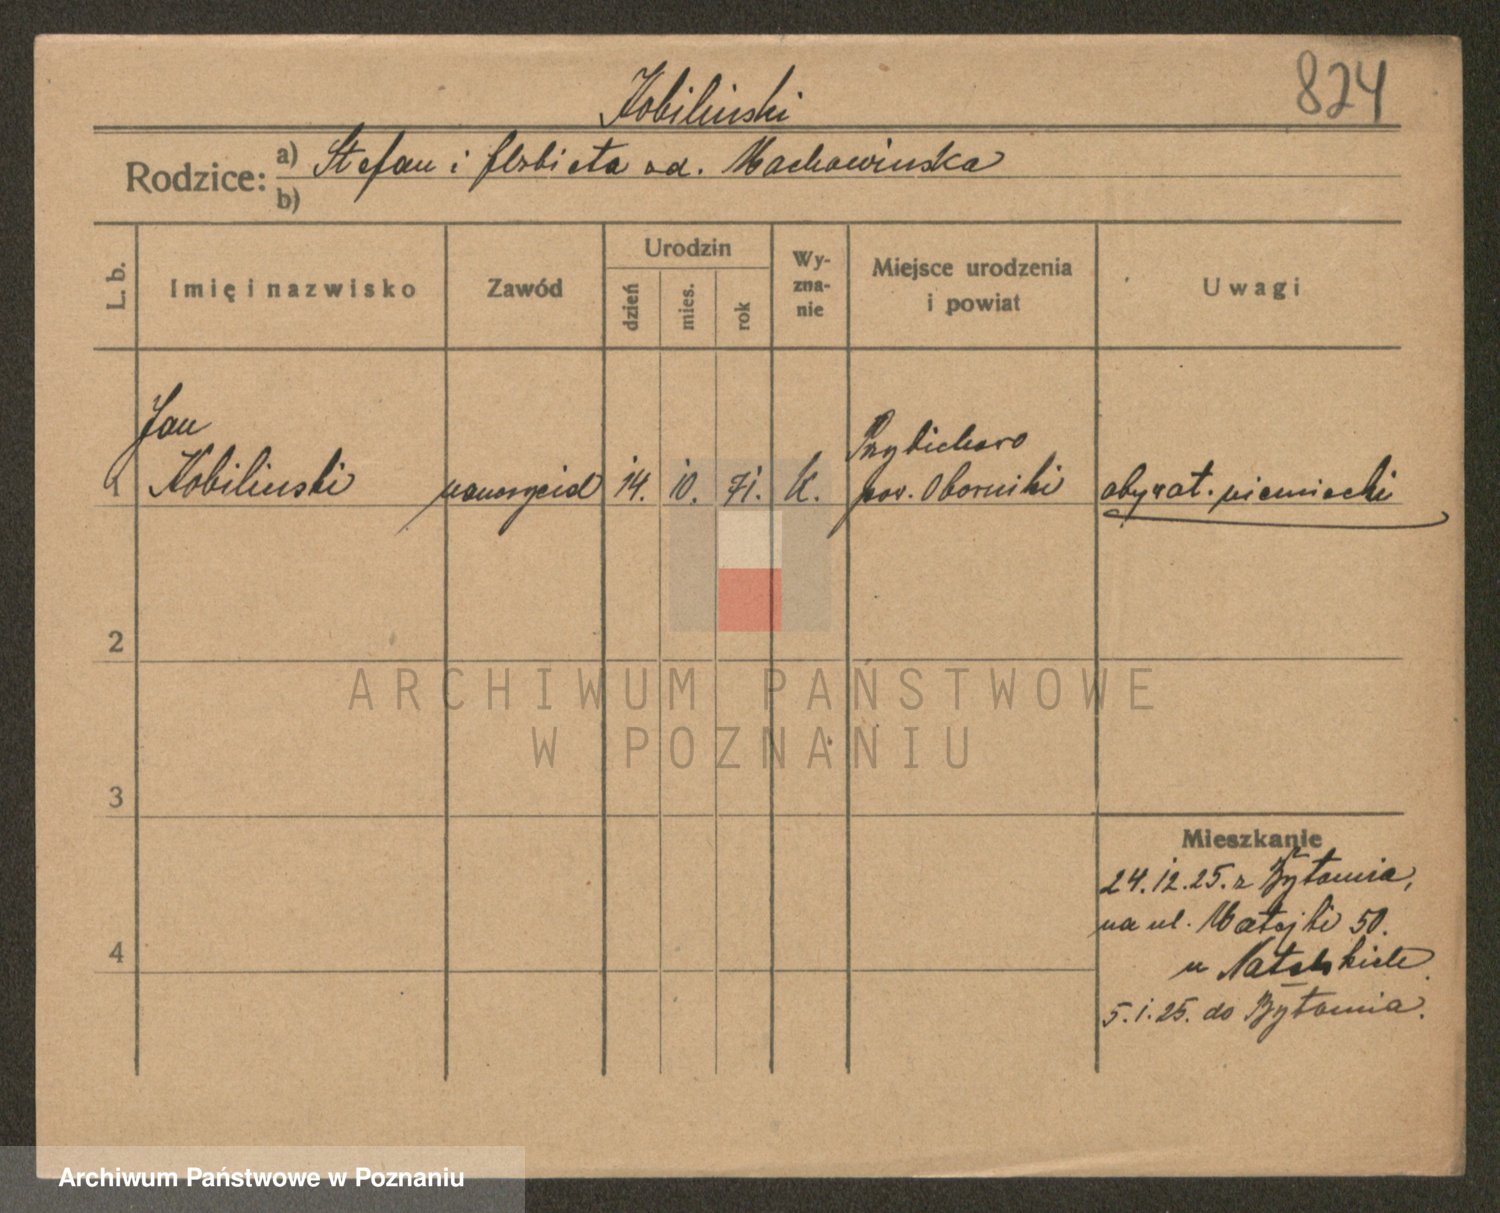 824
Kobilinski
Rodzice: a) Stefan i Elzbieta od. Machowinska
b)
L. b.
Imię i nazwisko
Zawód
Urodzin
dzień
mies.
rok
Wy-
zna-
nie
Miejsce urodzenia
i powiat
Uwagi
Jan
1 Kobilinski 14. 10. 71. K. pow. Oborniki obywat. niemiecki
2
3
4
Mieszkanie
24.12.25. z Bytomia,
na ul. Matejki 50.
u
5.1.25. do Bytomia.
ARCHIWUM PAŃSTWOWE
W POZNANIU
Archiwum Państwowe w Poznaniu